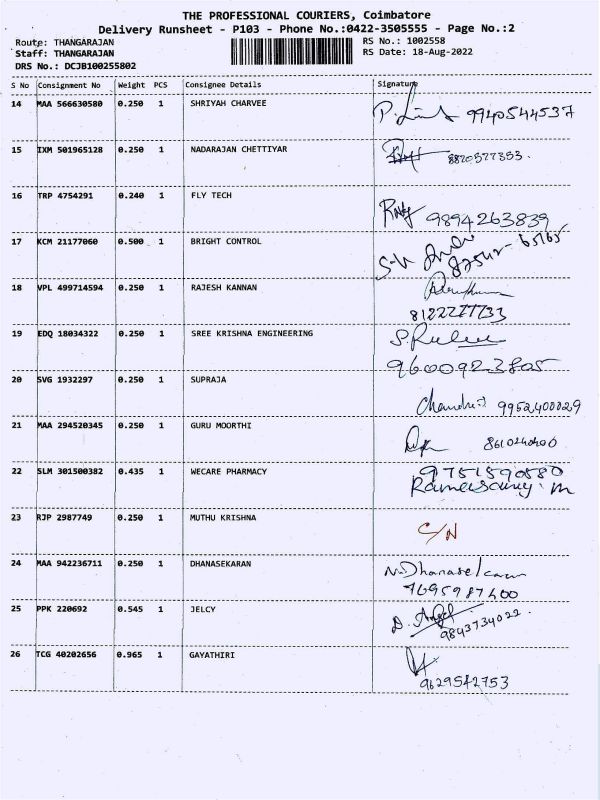 THE PROFESSIONAL COURIERS, Coimbatore
Delivery Runsheet - P103 - Phone No.:0422-3505555 - Page No.:2
Route: THANGARAJAN RS No.: 1002558
Staff: THANGARAJAN RS Date: 18-Aug-2022
DRS No.: DCJB100255802
S No Consignment No Weight PCS Consignee Details Signature
14 MAA 566630580 0.250 1 SHRIYAH CHARVEE 9940544537
15 IXM 501965128 0.250 1 NADARAJAN CHETTIYAR
16 TRP 4754291 0.240 1 FLY TECH 9894263839
17 KCM 21177060 0.500 1 BRIGHT CONTROL
18 VPL 499714594 0.250 1 RAJESH KANNAN
8122277733
19 EDQ 18034322 0.250 1 SREE KRISHNA ENGINEERING
9600923805
20 SVG 1932297 0.250 1 SUPRAJA
9952400029
21 MAA 294520345 0.250 1 GURU MOORTHI
22 SLM 301500382 0.435 1 WECARE PHARMACY 9751590580
Ramasamy. m
23 RJP 2987749 0.250 1 MUTHU KRISHNA C/N
24 MAA 942236711 0.250 1 DHANASEKARAN N.Dhanasekaran
7695987600
25 PPK 220692 0.545 1 JELCY D. Angel
9843734022.
26 TCG 40202656 0.965 1 GAYATHIRI
9629542753